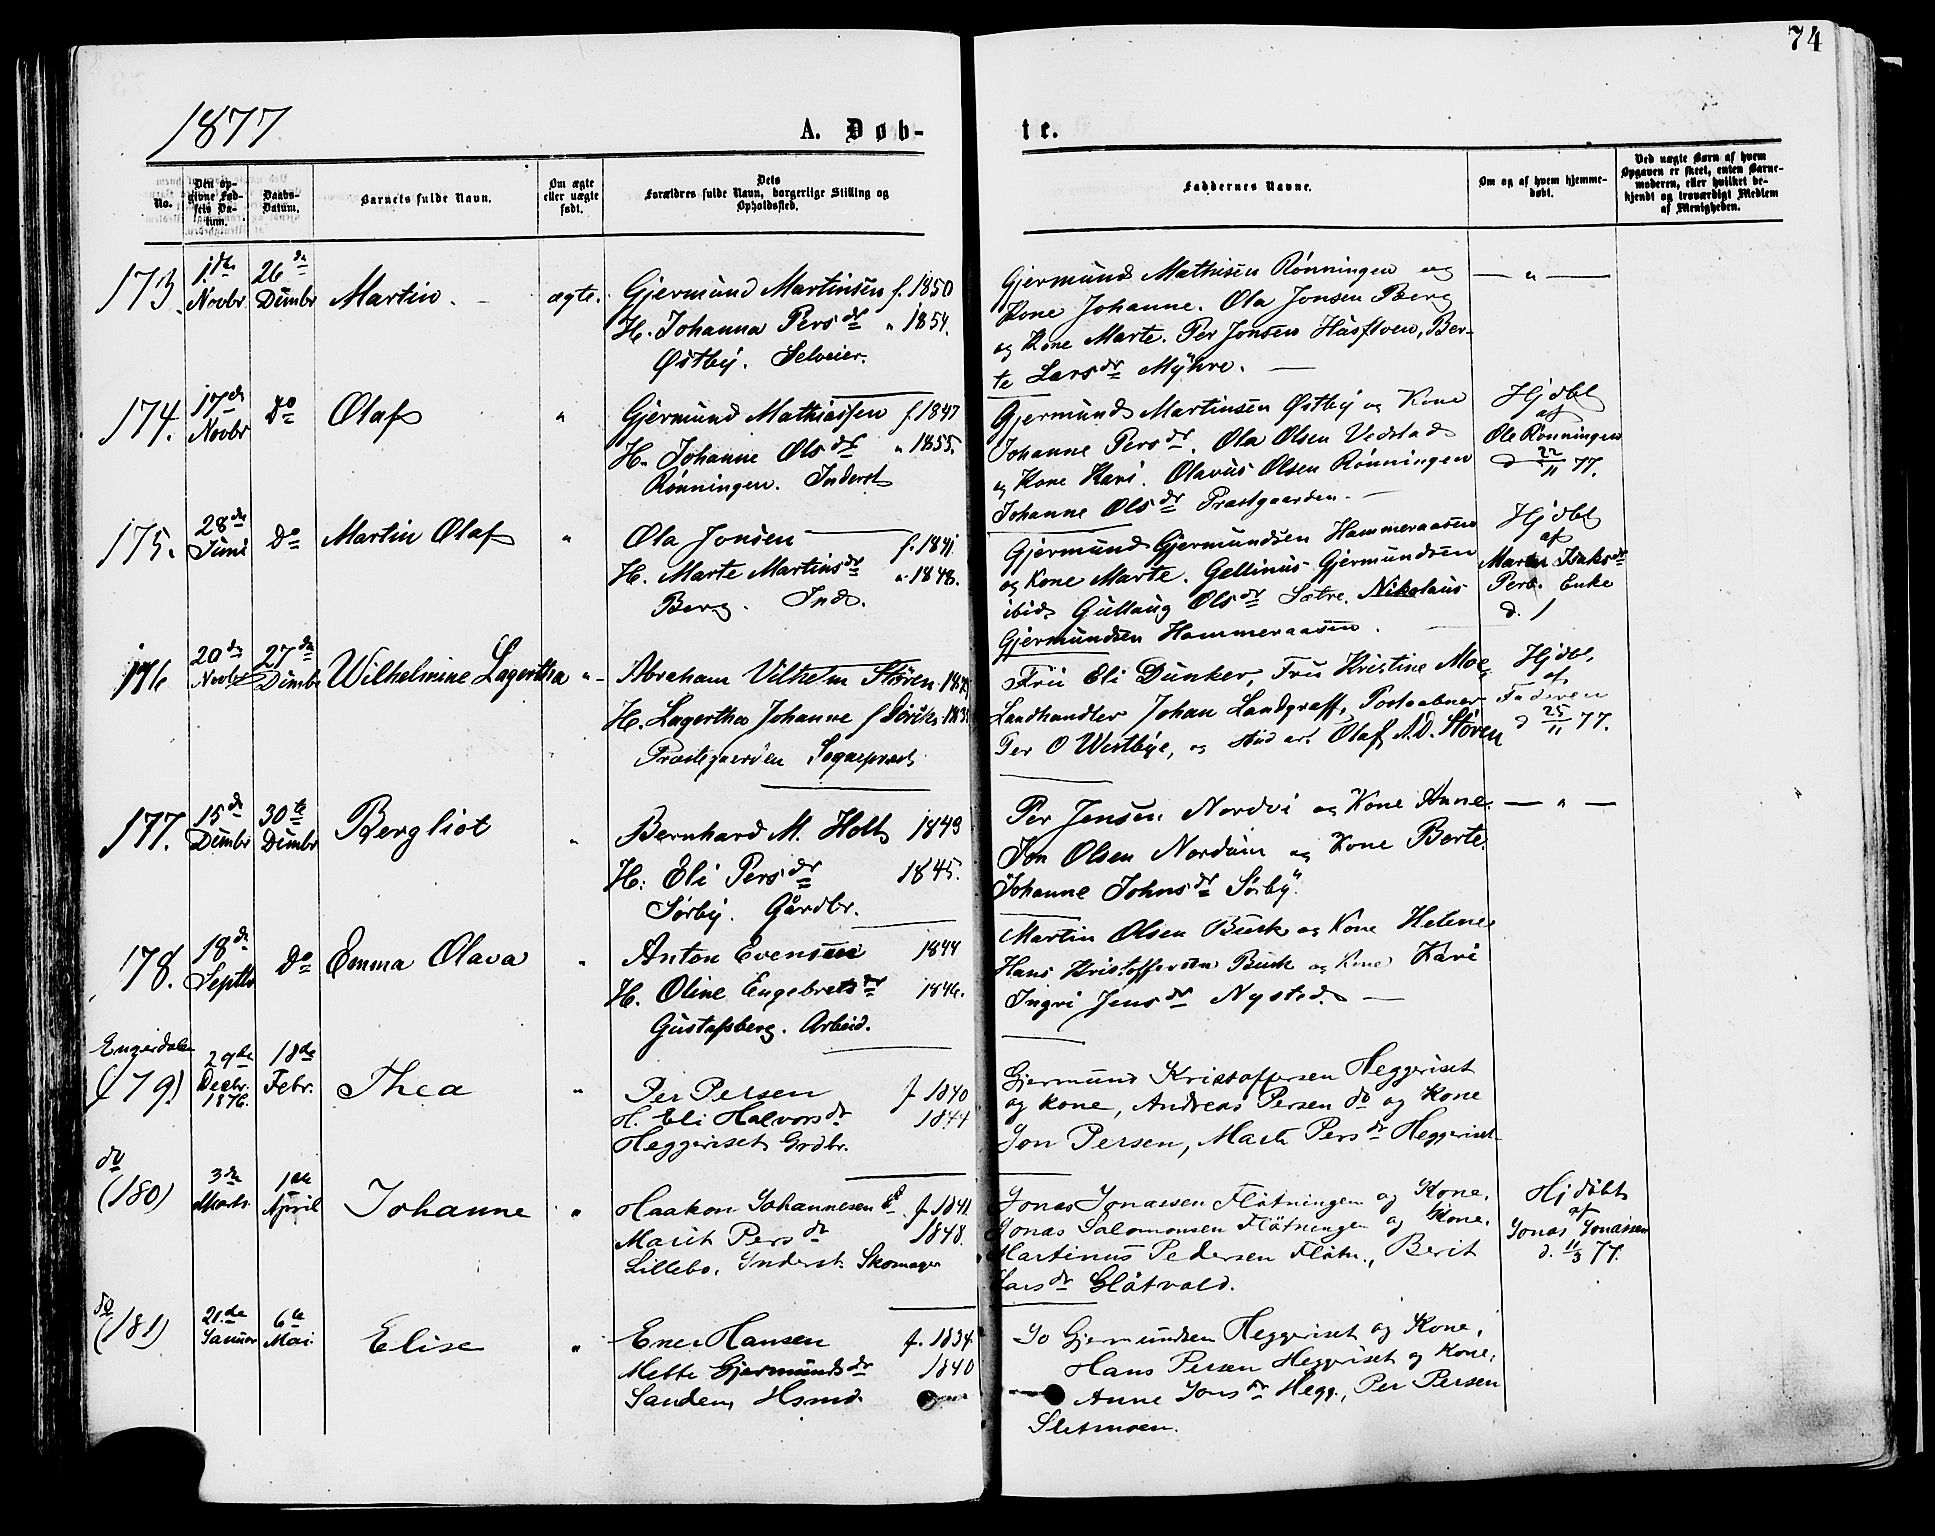 74
1877
A. Døb-
te.
No.
Den op-
givne Fød-
sels Da-
tum.
Daabs-
Datum.
Barnets fulde Navn.
Om ægte
eller uægte
født.
Dets
Forældres fulde Navn, borgerlige Stilling og
Opholdssted.
Faddernes Navne.
Om og af hvem hjemme-
døbt.
Ved uægte Børn af hvem
Opgaven er skeet, enten Barne-
moderen, eller hvilket be-
kjendt og troværdigt Medlem
af Menigheden.
173.
1. de
Novbr
26 de
Dcmbr
Martin.
ægte.
Gjermund Martinsen f. 1850
H. Johanna Persdr " 1854.
Østby. Selveier.
Gjermund Mathisen Rønningen og
Kone Johanne. Ola Jonsen Berg
og Kone Marte. Per Jonsen Husfloen, Ber-
te Larsdr Myhre.
— " —
174.
17 de
Novbr
Do
Olaf
"
Gjermund Mathiassen f 1847
H. Johanne Olsdr " 1855.
Rønningen. Inderst
Gjermund Martinsen Østby og Kone
Johanne Persdr. Ola Olsen Vedstad
og Kone Kari. Olavus Olsen Rønningen
Johanne Olsdr Præstgaarden.
Hjdbt
af
Ole Rønningen
d 22/11 77.
175.
28 de
Juni
Do
Martin Olaf
"
Ola Jonsen f. 1841.
H. Marte Martinsdr " 1848.
Berg. Ind.
Gjermund Gjermundsen Hammeraasen
og Kone Marte. Gellinus Gjermundsen
ibid. Gullaug Olsdr Sætre. Nikolaus
Gjermundsen Hammeraasen.
Hjdbt
af
Marte Isaksdr
Enke
d. /
176
20 de
Novbr
27 de
Dcmbr
Wilhelmine Lagertha
"
Abraham Vilhelm Støren
H. Lagertha Johanne f
Præstegaarden Sogneprest
Fru Eli Dunker, Fru Kristine Moe
Landhandler Johan Landgraff, Postaabner
Per O Westbye, og stud art. Olaf A. D. Støren
Hjdbt.
af
Faderen
d 25/11 77.
177.
15 de
Dcmbr
30 te
Dcmbr
Bergliot
"
Bernhard M. Holt 1849
H. Eli Persdr 1845.
Sørby. Gårdbr.
Per Jensen Nordvi og Kone Anne.
Jon Olsen Nordvin og Kone Berte.
Johanne Johnsdr Sørby.
— " —
178.
18 de
Septbr
Do
Emma Olava
"
Anton Evensen 1844
H. Oline Engebretsdr 1846.
Gustafsberg. Arbeid.
Martin Olsen Busk og Kone Helene
Hans Kristoffersen Busk og Kone Kari
Ingri Jensdr Nysted.
Engerdalen
(179)
29 de
Decbr.
1876.
18 de
Febr.
Thea
"
Per Persen f 1840
H. Eli Halvorsdr 1844
Heggeriset Grdbr.
Gjermund Kristoffersen Heggeriset
og kone, Andreas Persen do og Kone
Jon Persen, Marte Persdr Heggeriset
do
(180)
3 de
Marts
1 ste
April
Johanne
"
Haakon Johannesen f. 1841.
Marit Persdr 1848.
Lillebo, Inderst. Skomager
Jonas Jonassen Fløtningen og Kone,
Jonas Salomonsen Fløtningen og Kone.
Martinus Pedersen Fløtn., Berit
Larsdr Gløtvold.
Hjdøbt
af
Jonas Jonassen
d. 11/3 77.
do
(181)
21. de
Januar
6 te
Mai.
Elise
"
Ener Hansen f. 1834.
Mette Gjermundsdr 1840
Sanden, Hsmd.
Jo Gjermundsen Heggeriset og Kone,
Hans Persen Heggeriset og Kone,
Anne Jonsdr Hegg., Per Persen
Sletmoen.